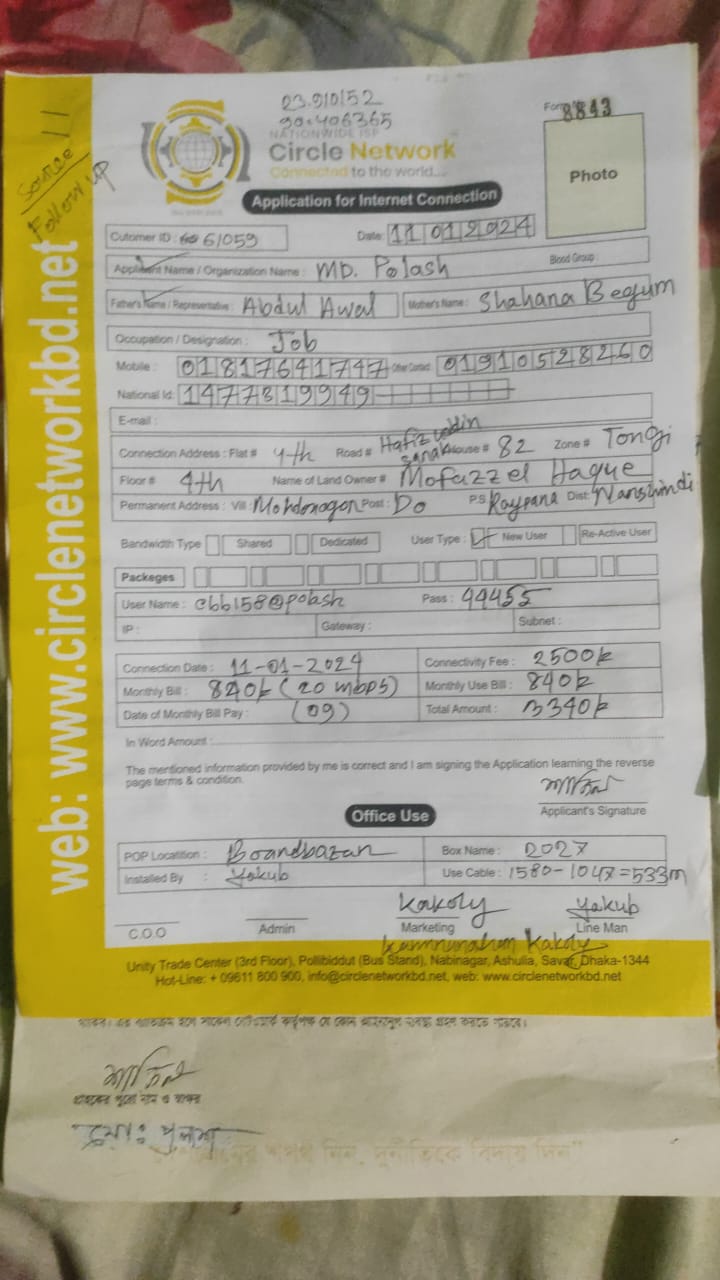 03.910152
90.406365
Form 8843
NATIONWIDE ISP
Circle Network
Connected to the world...
Photo
Application for Internet Connection
Source 11
Follow up
web: www.circlenetworkbd.net
Cutomer ID : 61059
Date: 11 01 2024
Applicant Name / Organization Name : MD. Polash
Blood Group :
Father's Name / Representative : Abdul Awal
Mother's Name : Shahana Begum
Occupation / Designation : Job
Mobile : 01817641747 Other Contact : 01910528260
National Id: 1477819949
E-mail :
Connection Address : Flat # 4-th Road # Hafiz uddin House # 82 Zone # Tongi
Floor # 4th Name of Land Owner # Mofazzel Haque
Permanent Address : Vill : Post : Do P.S Dist:
Bandwidth Type Shared Dedicated User Type : New User Re-Active User
Packeges
User Name : cbb158@polash Pass : 44455
IP : Gateway : Subnet :
Connection Date : 11-01-2024 Connectivity Fee : 2500/=
Monthly Bill : 840/= (20 mbps) Monthly Use Bill : 840/=
Date of Monthly Bill Pay : (09) Total Amount : 3340/=
In Word Amount :
The mentioned information provided by me is correct and I am signing the Application learning the reverse
page terms & condition.
Applicant's Signature
Office Use
POP Locatition : Boardbazar Box Name : 2027
Installed By : Yakub Use Cable : 1580-1047=533m
Kakoly Yakub
C.O.O Admin Marketing Line Man
Kamrunnahar Kakoly
Unity Trade Center (3rd Floor), Pollibiddut (Bus Stand), Nabinagar, Ashulia, Savar, Dhaka-1344
Hot-Line: + 09611 800 900, info@circlenetworkbd.net, web: www.circlenetworkbd.net
গ্রাহকের পুরো নাম ও স্বাক্ষর
মোঃ পলাশ